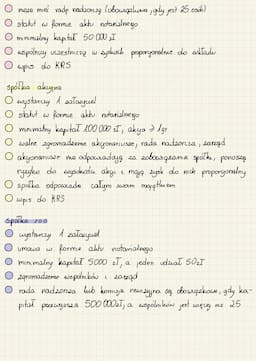 może mieć radę nadzorczą (obowiązkowa, gdy jest 25 osób)
statut w formie aktu notarialnego
minimalny kapitał 50 000 zł
wspólnicy uczestniczą w zyskach proporcjonalnie do wkładu
wpis do KRS
spółka akcyjna
wystarczy 1 założyciel
statut w formie aktu notarialnego
minimalny kapitał 100 000 zł, akcja ≥ 1gr
walne zgromadzenie akcjonariuszy, rada nadzorcza, zarząd
akcjonariusze nie odpowiadają za zobowiązania spółki, ponoszą
ryzyko do wysokości akcji i mają zysk do nich proporcjonalny
spółka odpowiada całym swoim majątkiem
wpis do KRS
spółka zoo
wystarczy 1 założyciel
umowa w formie aktu notarialnego
minimalny kapitał 5000 zł, a jeden udział 50zł
zgromadzenie wspólników i zarząd
rada nadzorcza lub komisja rewizyjna są obowiązkowe, gdy ka-
pitał przewyższa 500 000zł, a wspólników jest więcej niż 25